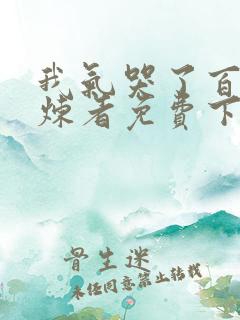 我氣哭了百
煉者免費下
骨生迷
未经同意禁止转载